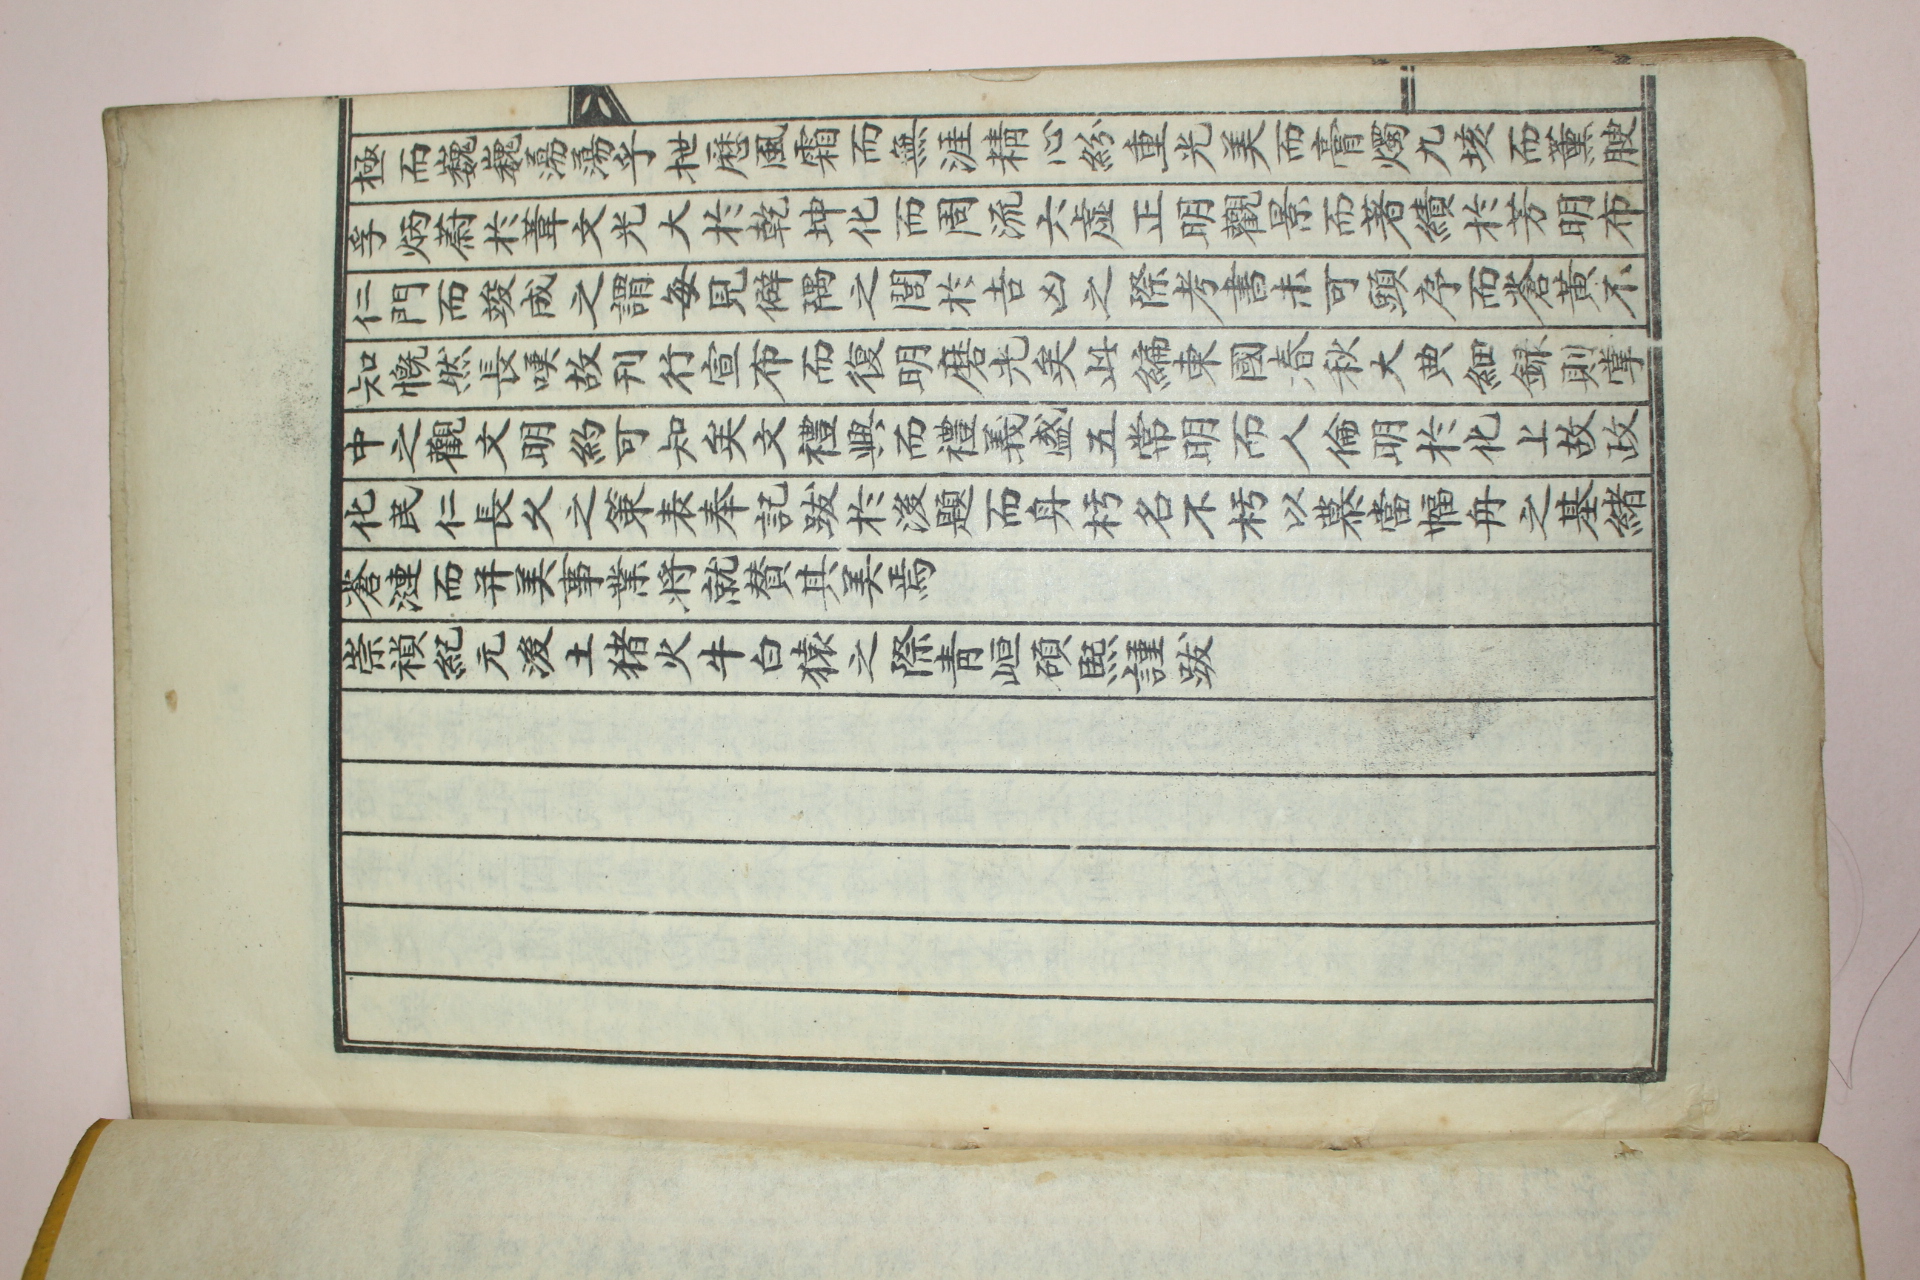 極而巍巍蕩蕩乎枻歷風霜而無涯精心紛重光美而膏燭九垓而薰腴
孚炳蔚於葦文光大於乾坤化而周流六虛正明觀景而著績於芳明布
仁門而竣成之謂每見僻隅之閭於吉凶之際考書未可頭序而蒼黃不
知慨然長嘆故刊行宣布而復明磨光矣此編東國春秋大典細録則掌
中之觀文明約可知矣文禮興而禮義盛五常明而人倫明於化上故政
化民仁長久之策表奉記跋於後題而身朽名不朽以慕當幅舟之基緒
蒼漣而并美事業將就賛其美焉
崇禎紀元後土猪火牛白猿之際青峘碩熙謹跋